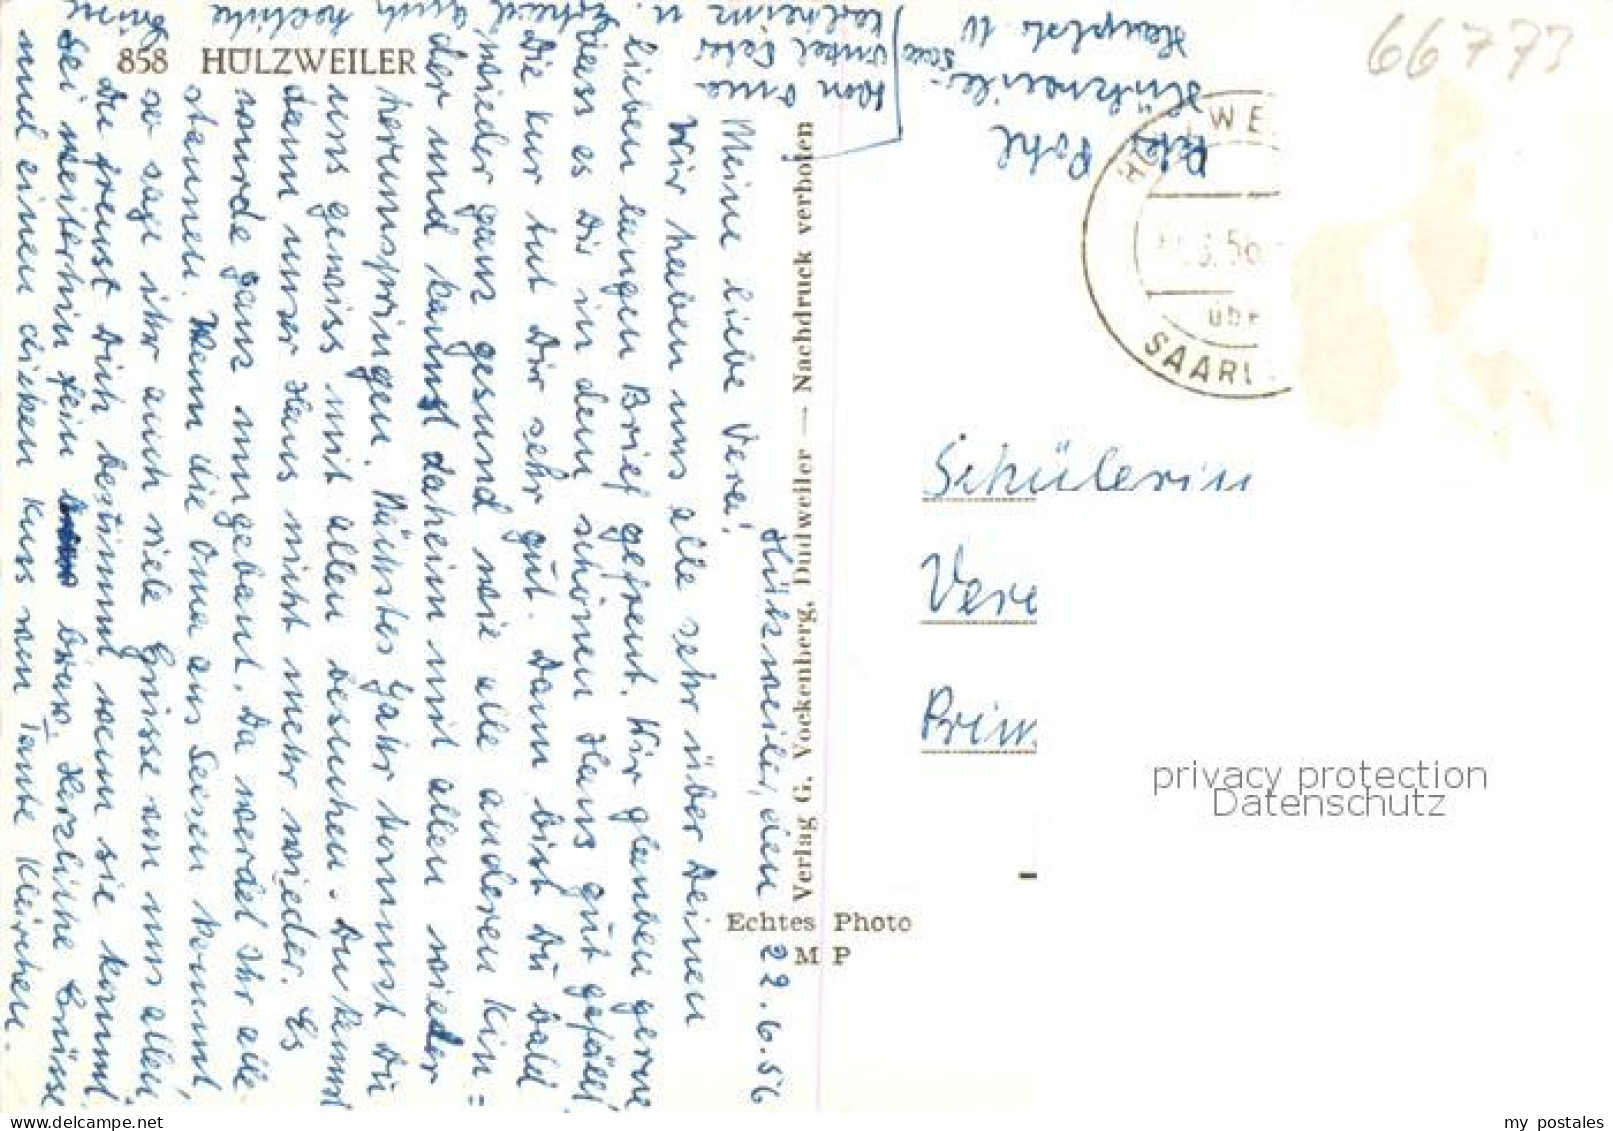 858 HÜLZWEILER
66773
Hülzweiler, den 22.6.56
Meine liebe Vera!
Wir haben uns alle sehr über Deinen
lieben langen Brief gefreut. Wir glauben gerne
dass es Dir in dem schönen Haus gut gefällt,
die Kur tut Dir sehr gut. Dann bist Du bald
wieder ganz gesund wie alle anderen Kin=
der und kannst daheim mit allen wieder
herumspringen. Nächstes Jahr kommst Du
uns gewiss mit allen besuchen. Du kennst
dann unser Haus nicht mehr wieder. Es
wurde ganz umgebaut. Da werdet Ihr alle
staunen. Wenn die Oma aus Seisen kommt,
so sage ihr auch viele Grüsse von uns allen
Du freust Dich bestimmt wenn sie kommt.
Sei weiterhin fein brav. Herzliche Grüsse
und einen dicken Kuss von Tante Klärchen.
Von Oma
Onkel Peter
Karlheim u.
auch herzliche
Grüsse
Peter Pohl
Hülzweiler
Saar
Hauptstr. 10
Verlag G. Vockenberg, Dudweiler — Nachdruck verboten
Echtes Photo
M P
SAARL
56
übe
Schülerin
Vere
Prim
privacy protection
Datenschutz
my postales